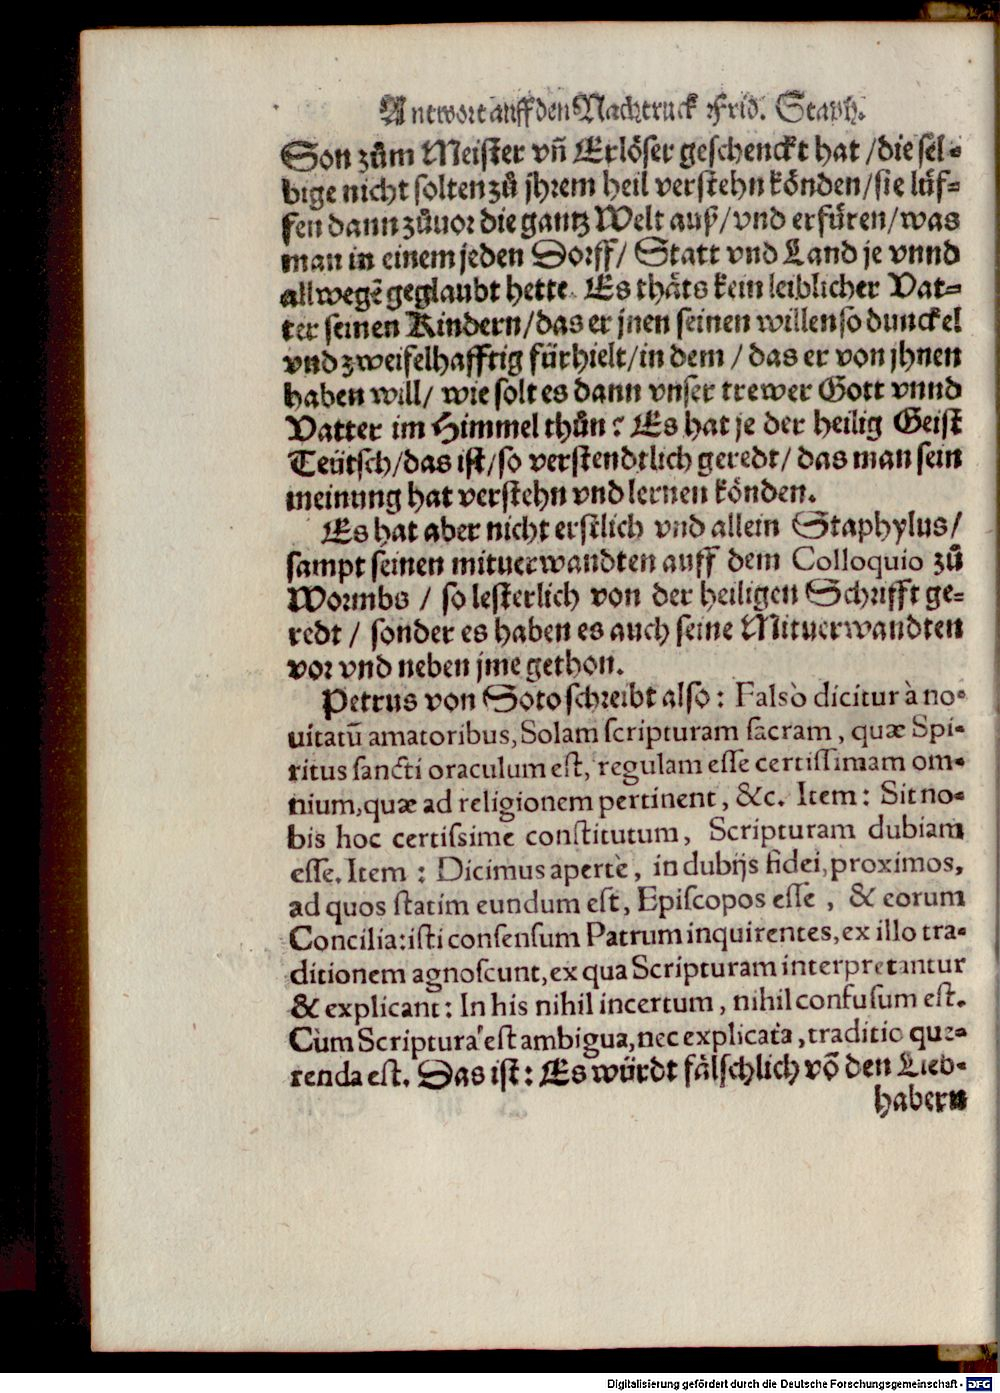 Antwort auff den Nachtruck Frid. Staph.
Son zům Meister vñ Erlöser geschenckt hat / die sel-
bige nicht solten zů jhrem heil verstehn könden / sie lüf-
fen dann zůuor die gantz Welt auß / vnd erfüren / was
man in einem jeden Dorff / Statt vnd Land je vnnd
allwegẽ geglaubt hette. Es thäts kein leiblicher Vat-
ter seinen Kindern / das er jnen seinen willen so dunckel
vnd zweifelhafftig fürhielt / in dem / das er von jhnen
haben will / wie solt es dann vnser trewer Gott vnnd
Vatter im Himmel thůn? Es hat je der heilig Geist
Teütsch / das ist / so verstendtlich geredt / das man sein
meinung hat verstehn vnd lernen könden.
Es hat aber nicht erstlich vnd allein Staphylus /
sampt seinen mituerwandten auff dem Colloquio zů
Wormbs / so lesterlich von der heiligen Schrifft ge-
redt / sonder es haben es auch seine Mituerwandten
vor vnd neben jme gethon.
Petrus von Soto schreibt also: Falsò dicitur à no-
uitatũ amatoribus, Solam scripturam sacram, quæ Spi-
ritus sancti oraculum est, regulam esse certissimam om-
nium, quæ ad religionem pertinent, &c. Item: Sit no-
bis hoc certissime constitutum, Scripturam dubiam
esse. Item: Dicimus apertè, in dubijs fidei, proximos,
ad quos statim eundum est, Episcopos esse, & eorum
Concilia: isti consensum Patrum inquirentes, ex illo tra-
ditionem agnoscunt, ex qua Scripturam interpretantur
& explicant: In his nihil incertum, nihil confusum est.
Cùm Scriptura est ambigua, nec explicata, traditio quæ-
renda est. Das ist: Es würdt fälschlich võ den Lieb-
habern
Digitalisierung gefördert durch die Deutsche Forschungsgemeinschaft - DFG